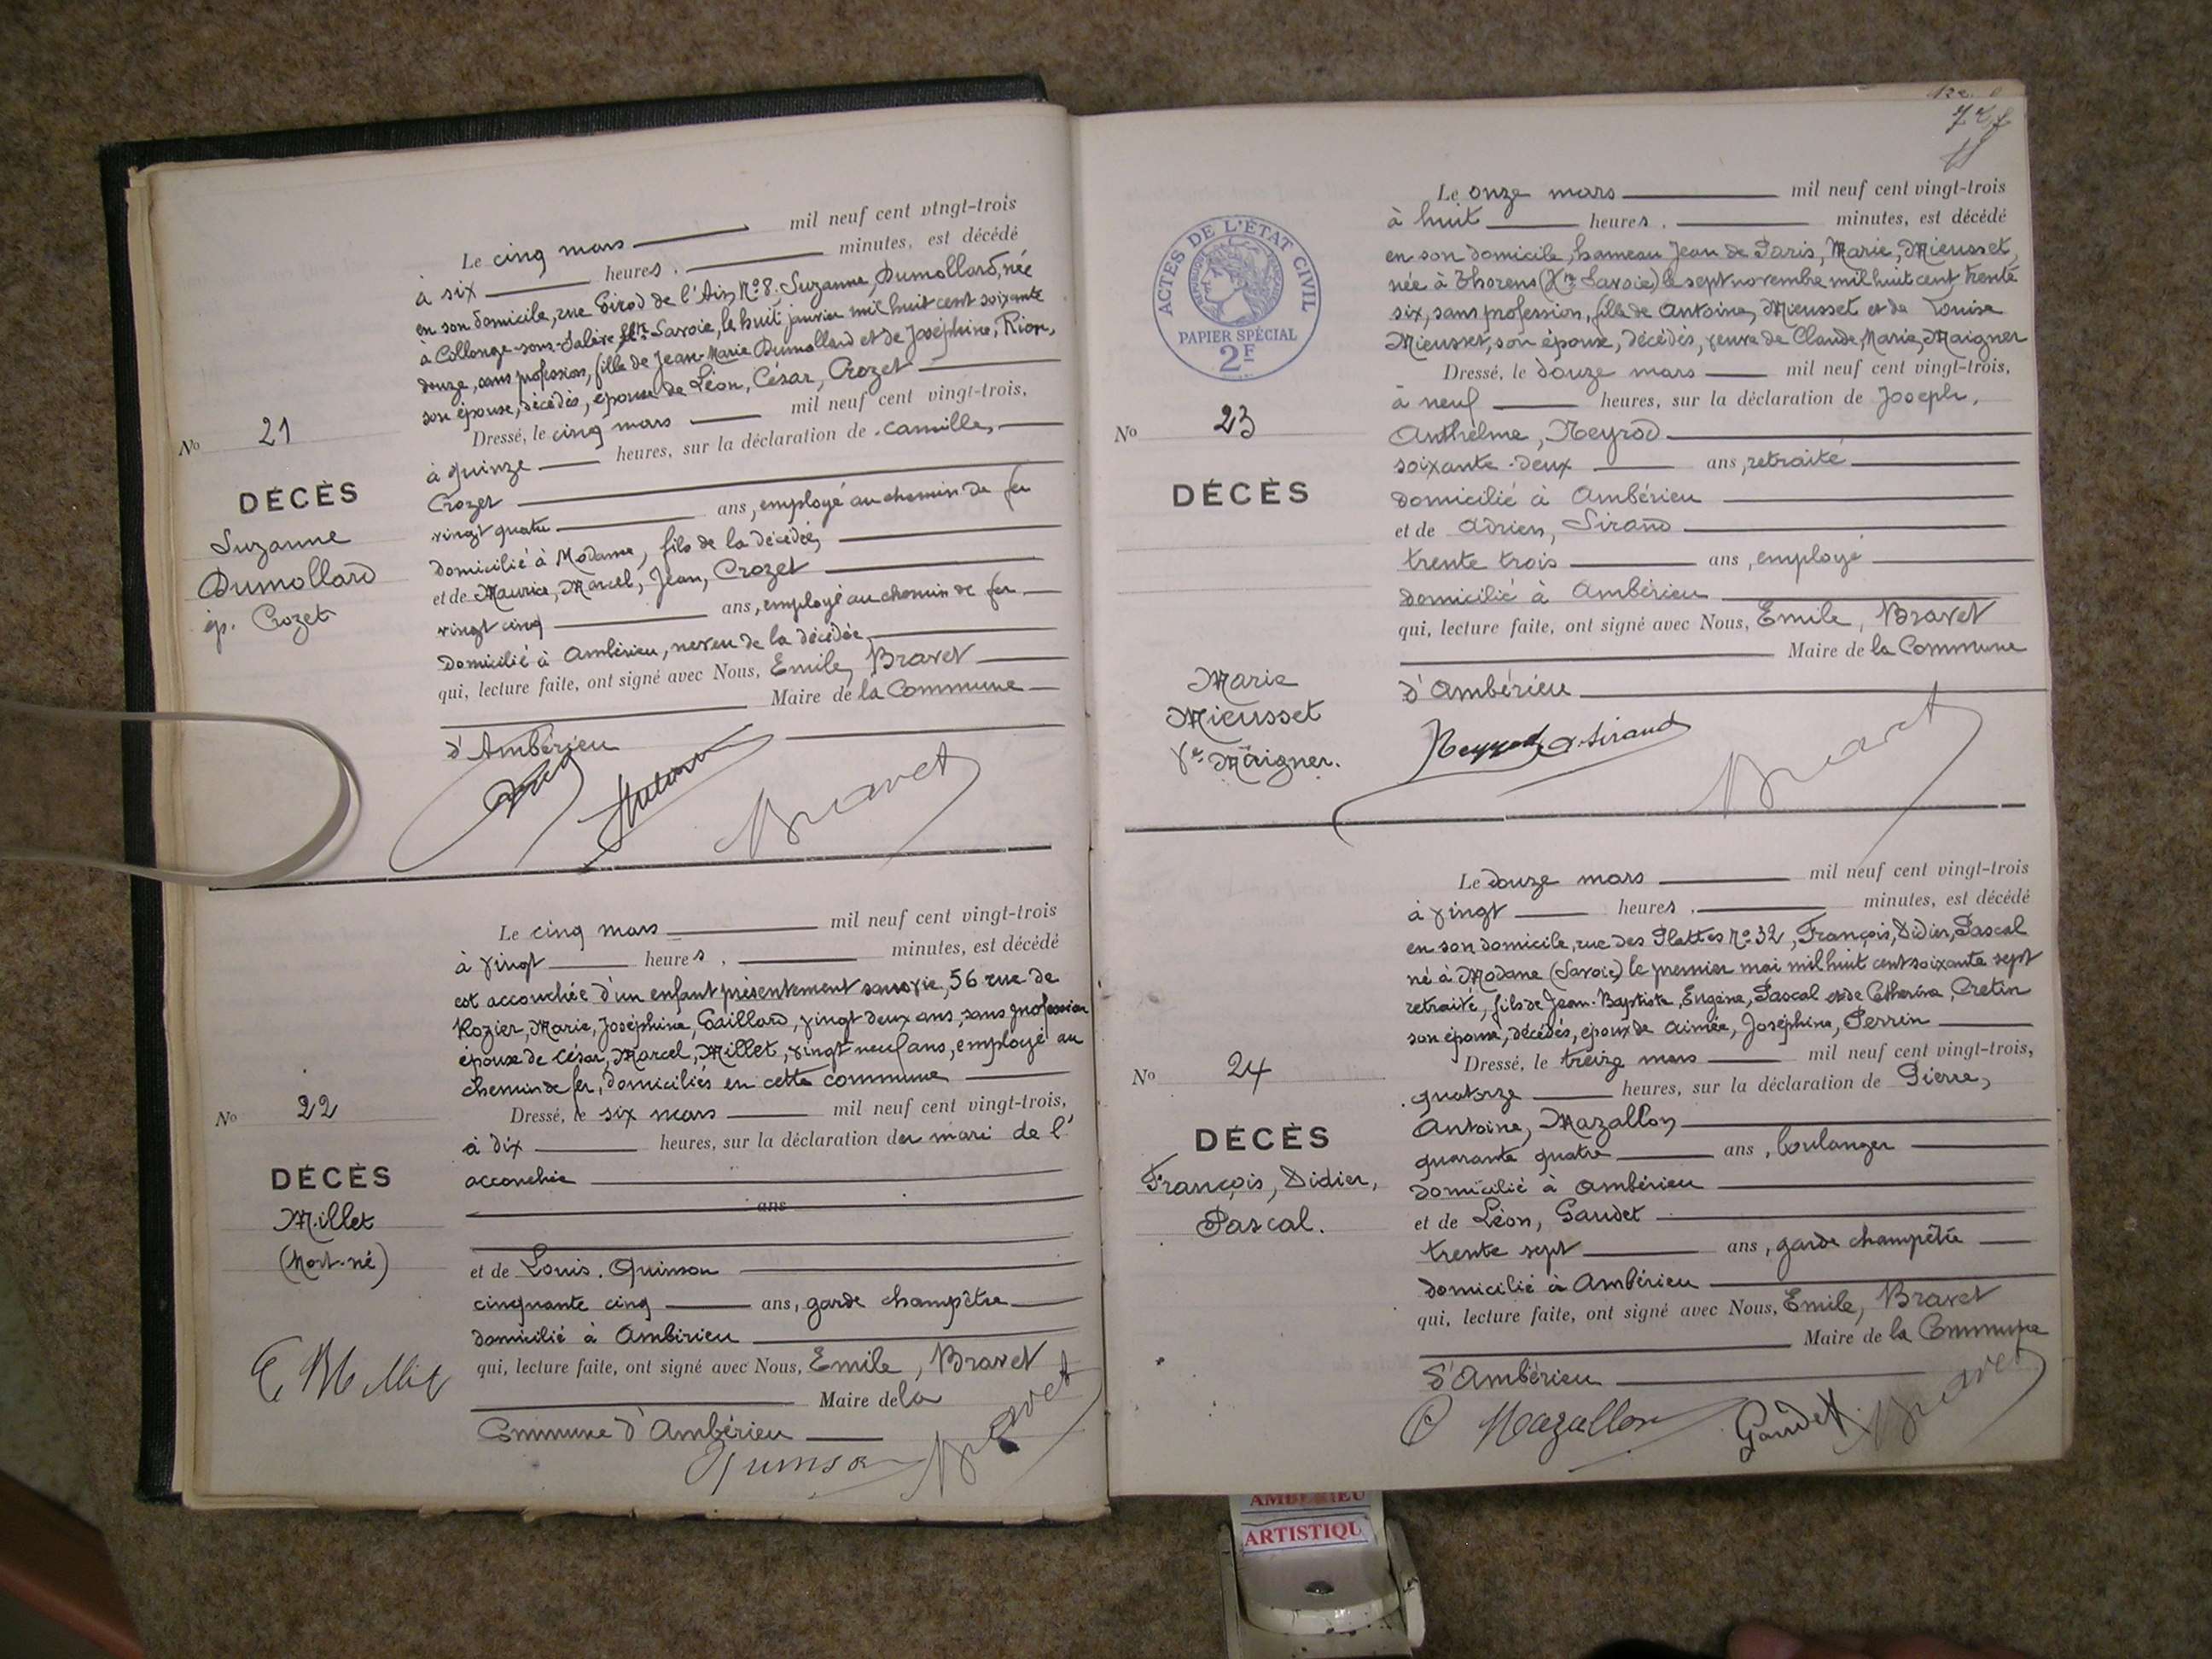 Le cinq mars mil neuf cent vingt-trois
à six heures, minutes, est décédé
en son domicile, rue Girod de l'Ain, No 8. Suzanne, Dumollard, née
à Collonge-sous-Salève Hte Savoie, le huit janvier mil huit cent soixante
douze, sans profession, fille de Jean-Marie Dumollard et de Joséphine, Rion,
son épouse, décédés, épouse de Léon, César, Crozet
Dressé, le cinq mars mil neuf cent vingt-trois,
à quinze heures, sur la déclaration de Camille,
Crozet
vingt quatre ans, employé au chemin de fer
domicilié à Modane, fils de la décédée,
et de Maurice, Marcel, Jean, Crozet
vingt cinq ans, employé au chemin de fer
domicilié à Ambérieu, neveu de la décédée,
qui, lecture faite, ont signé avec Nous, Emile, Bravet
Maire de la Commune
d'Ambérieu
Bravet
No 21
DÉCÈS
Suzanne
Dumollard
ép. Crozet
Le cinq mars mil neuf cent vingt-trois
à vingt heures, minutes, est décédé
est accouchée d'un enfant présentement sans vie, 56 rue de
Rozier, Marie, Joséphine, Gaillard, vingt deux ans, sans profession
épouse de César, Marcel, Millet, vingt neuf ans, employé au
chemin de fer, domiciliés en cette commune
Dressé, le six mars mil neuf cent vingt-trois,
à dix heures, sur la déclaration du mari de l'
accouchée
ans
et de Louis. Quinson
cinquante cinq ans, garde champêtre
domicilié à Ambérieu
qui, lecture faite, ont signé avec Nous, Emile, Bravet
Maire de la
Commune d'Ambérieu
Quinson Bravet
No 22
DÉCÈS
Millet
(Mort-né)
Le onze mars mil neuf cent vingt-trois
à huit heures, minutes, est décédé
en son domicile, hameau Jean de Paris, Marie, Mieusset,
née à Thorens (Hte Savoie) le sept novembre mil huit cent trente
six, sans profession, fille de Antoine, Mieusset et de Louise
Mieusset, son épouse, décédés, veuve de Claude, Marie, Maigner
Dressé, le douze mars mil neuf cent vingt-trois,
à neuf heures, sur la déclaration de Joseph,
Anthelme, Neyrod
soixante-deux ans, retraité
domicilié à Ambérieu
et de Adrien, Siraud
trente trois ans, employé
domicilié à Ambérieu
qui, lecture faite, ont signé avec Nous, Emile, Bravet
Maire de la Commune
d'Ambérieu
Neyrod A. Siraud Bravet
ACTES DE L'ÉTAT CIVIL
RÉPUBLIQUE FRANÇAISE
PAPIER SPÉCIAL
2F
No 23
DÉCÈS
Marie
Mieusset
Ve Maigner.
Le douze mars mil neuf cent vingt-trois
à vingt heures, minutes, est décédé
en son domicile, rue des Plattes No 32, François, Didier, Pascal
né à Modane (Savoie) le premier mai mil huit cent soixante sept
retraité, fils de Jean-Baptiste, Eugène, Pascal et de Catherine, Cretin
son épouse, décédés, époux de Aimée, Joséphine, Perrin
Dressé, le treize mars mil neuf cent vingt-trois,
quatorze heures, sur la déclaration de Pierre,
Antoine, Mazallon
quarante quatre ans, boulanger
domicilié à Ambérieu
et de Léon, Gaudet
trente sept ans, garde champêtre
domicilié à Ambérieu
qui, lecture faite, ont signé avec Nous, Emile, Bravet
Maire de la Commune
d'Ambérieu
Mazallon Gaudet Bravet
No 24
DÉCÈS
François, Didier,
Pascal.
AMBERIEU
ARTISTIQU